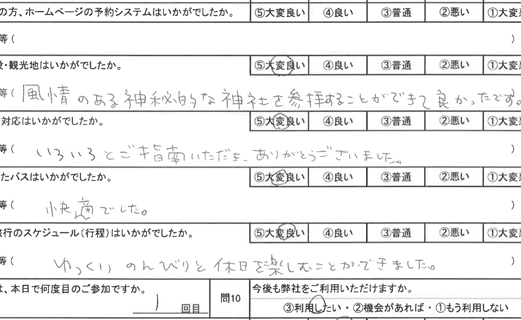 の方、ホームページの予約システムはいかがでしたか。 ⑤大変良い ④良い ③普通 ②悪い ①大変
等( )
・観光地はいかがでしたか。 ⑤大変良い ④良い ③普通 ②悪い ①大変
等( 風情のある神秘的な神社を参拝することができて良かったです。
対応はいかがでしたか。 ⑤大変良い ④良い ③普通 ②悪い ①大変
等( いろいろとご指南いただき、ありがとうございました。 )
たバスはいかがでしたか。 ⑤大変良い ④良い ③普通 ②悪い ①大変
等( 快適でした。 )
旅行のスケジュール(行程)はいかがでしたか。 ⑤大変良い ④良い ③普通 ②悪い ①大変
等( ゆっくり のんびりと休日を楽しむことができました。 )
は、本日で何度目のご参加ですか。 1 回目 問10 今後も弊社をご利用いただけますか。
③利用したい・②機会があれば・①もう利用しない